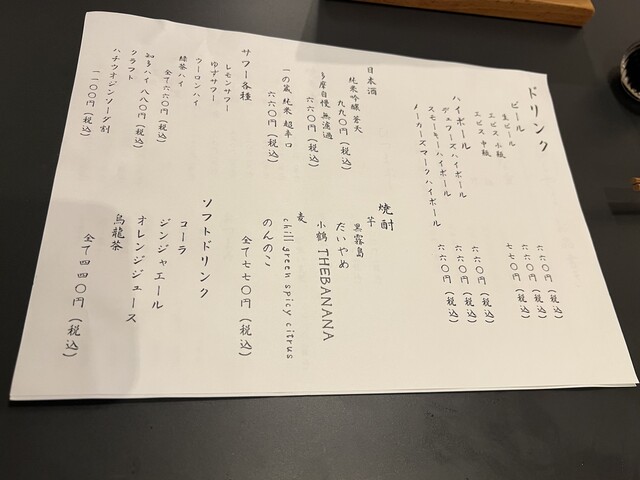 ドリンク
ビール
生ビール 六六〇円（税込）
エビス 小瓶 六六〇円（税込）
エビス 中瓶 七七〇円（税込）
ハイボール
デュワーズハイボール 六六〇円（税込）
スモーキーハイボール 六六〇円（税込）
メーカーズマークハイボール 六六〇円（税込）
日本酒
純米吟醸 蒼天
九九〇円（税込）
多摩自慢 無濾過
六六〇円（税込）
一の蔵 純米 超辛口
六六〇円（税込）
サワー各種
レモンサワー
ゆずサワー
ウーロンハイ
緑茶ハイ
全て六六〇円（税込）
クラフト
ハチクオジンソーダ割
一一〇〇円（税込）
焼酎
芋
黒霧島
だいやめ
小鶴 THEBANANA
麦
chill green spicy citrus
のんのこ
全て七七〇円（税込）
ソフトドリンク
コーラ
ジンジャエール
オレンジジュース
烏龍茶
全て四四〇円（税込）